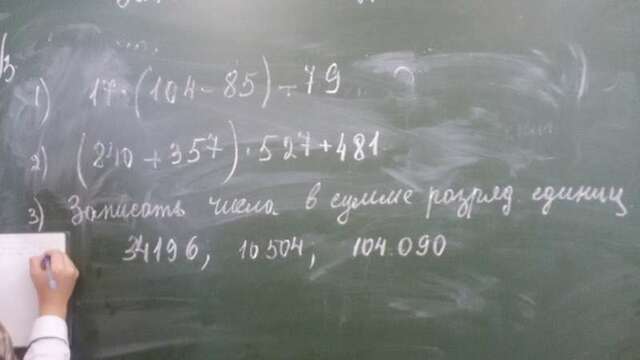 1) 17·(104-85)-79
2) (240+357)·527+481
3) Записать числа в сумме разряд. единиц
34196; 10504; 104090